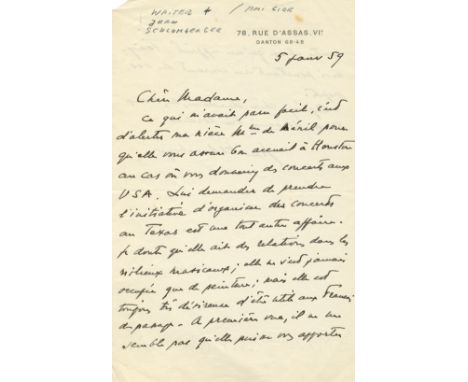 WRITER +
JEAN
SCHLUMBERGER
78, RUE D'ASSAS. VIe
DANTON 69-45
5 janv 59
Chère Madame,
Ce qui m'avait paru facile, c'est
d'alerter ma nièce Mme de Ménil pour
qu'elle vous assure bon accueil à Houston
au cas où vous donneriez des concerts aux
USA. Lui demander de prendre
l'initiative d'organiser des concerts
au Texas est une tout autre affaire.
Je doute qu'elle ait des relations dans les
milieux musicaux ; elle ne s'est jamais
occupée que de peinture ; mais elle est
toujours très désireuse d'être utile aux Français
de passage. A première vue, il ne me
semble pas qu'elle puisse vous apporter